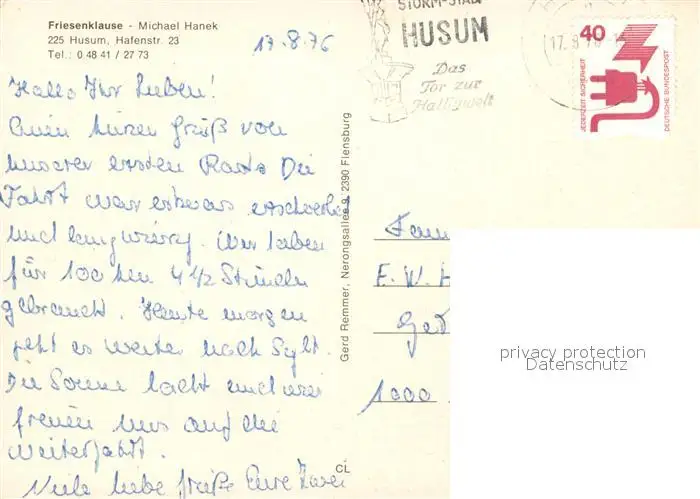 Friesenklause - Michael Hanek
225 Husum, Hafenstr. 23
Tel.: 0 48 41 / 27 73
17.8.76
Hallo Ihr Lieben!
Einen kurzen Gruß von
unserer ersten Rast. Die
Fahrt war etwas erschwerlich
und langwierig. Wir haben
für 100 km 4 1/2 Stunden
gebraucht. Heute morgen
geht es weiter nach Sylt.
Die Sonne lacht und wir
freuen uns auf die
Weiterfahrt.
Viele liebe Grüße Eure Zwei
Gerd Remmer, Nerongsallee 9, 2390 Flensburg
CL
STORM-STADT
HUSUM
Das
Tor zur
Halligwelt
17.8.76
40
JEDERZEIT SICHERHEIT
DEUTSCHE BUNDESPOST
Fam
E. W. H
1000
privacy protection
Datenschutz